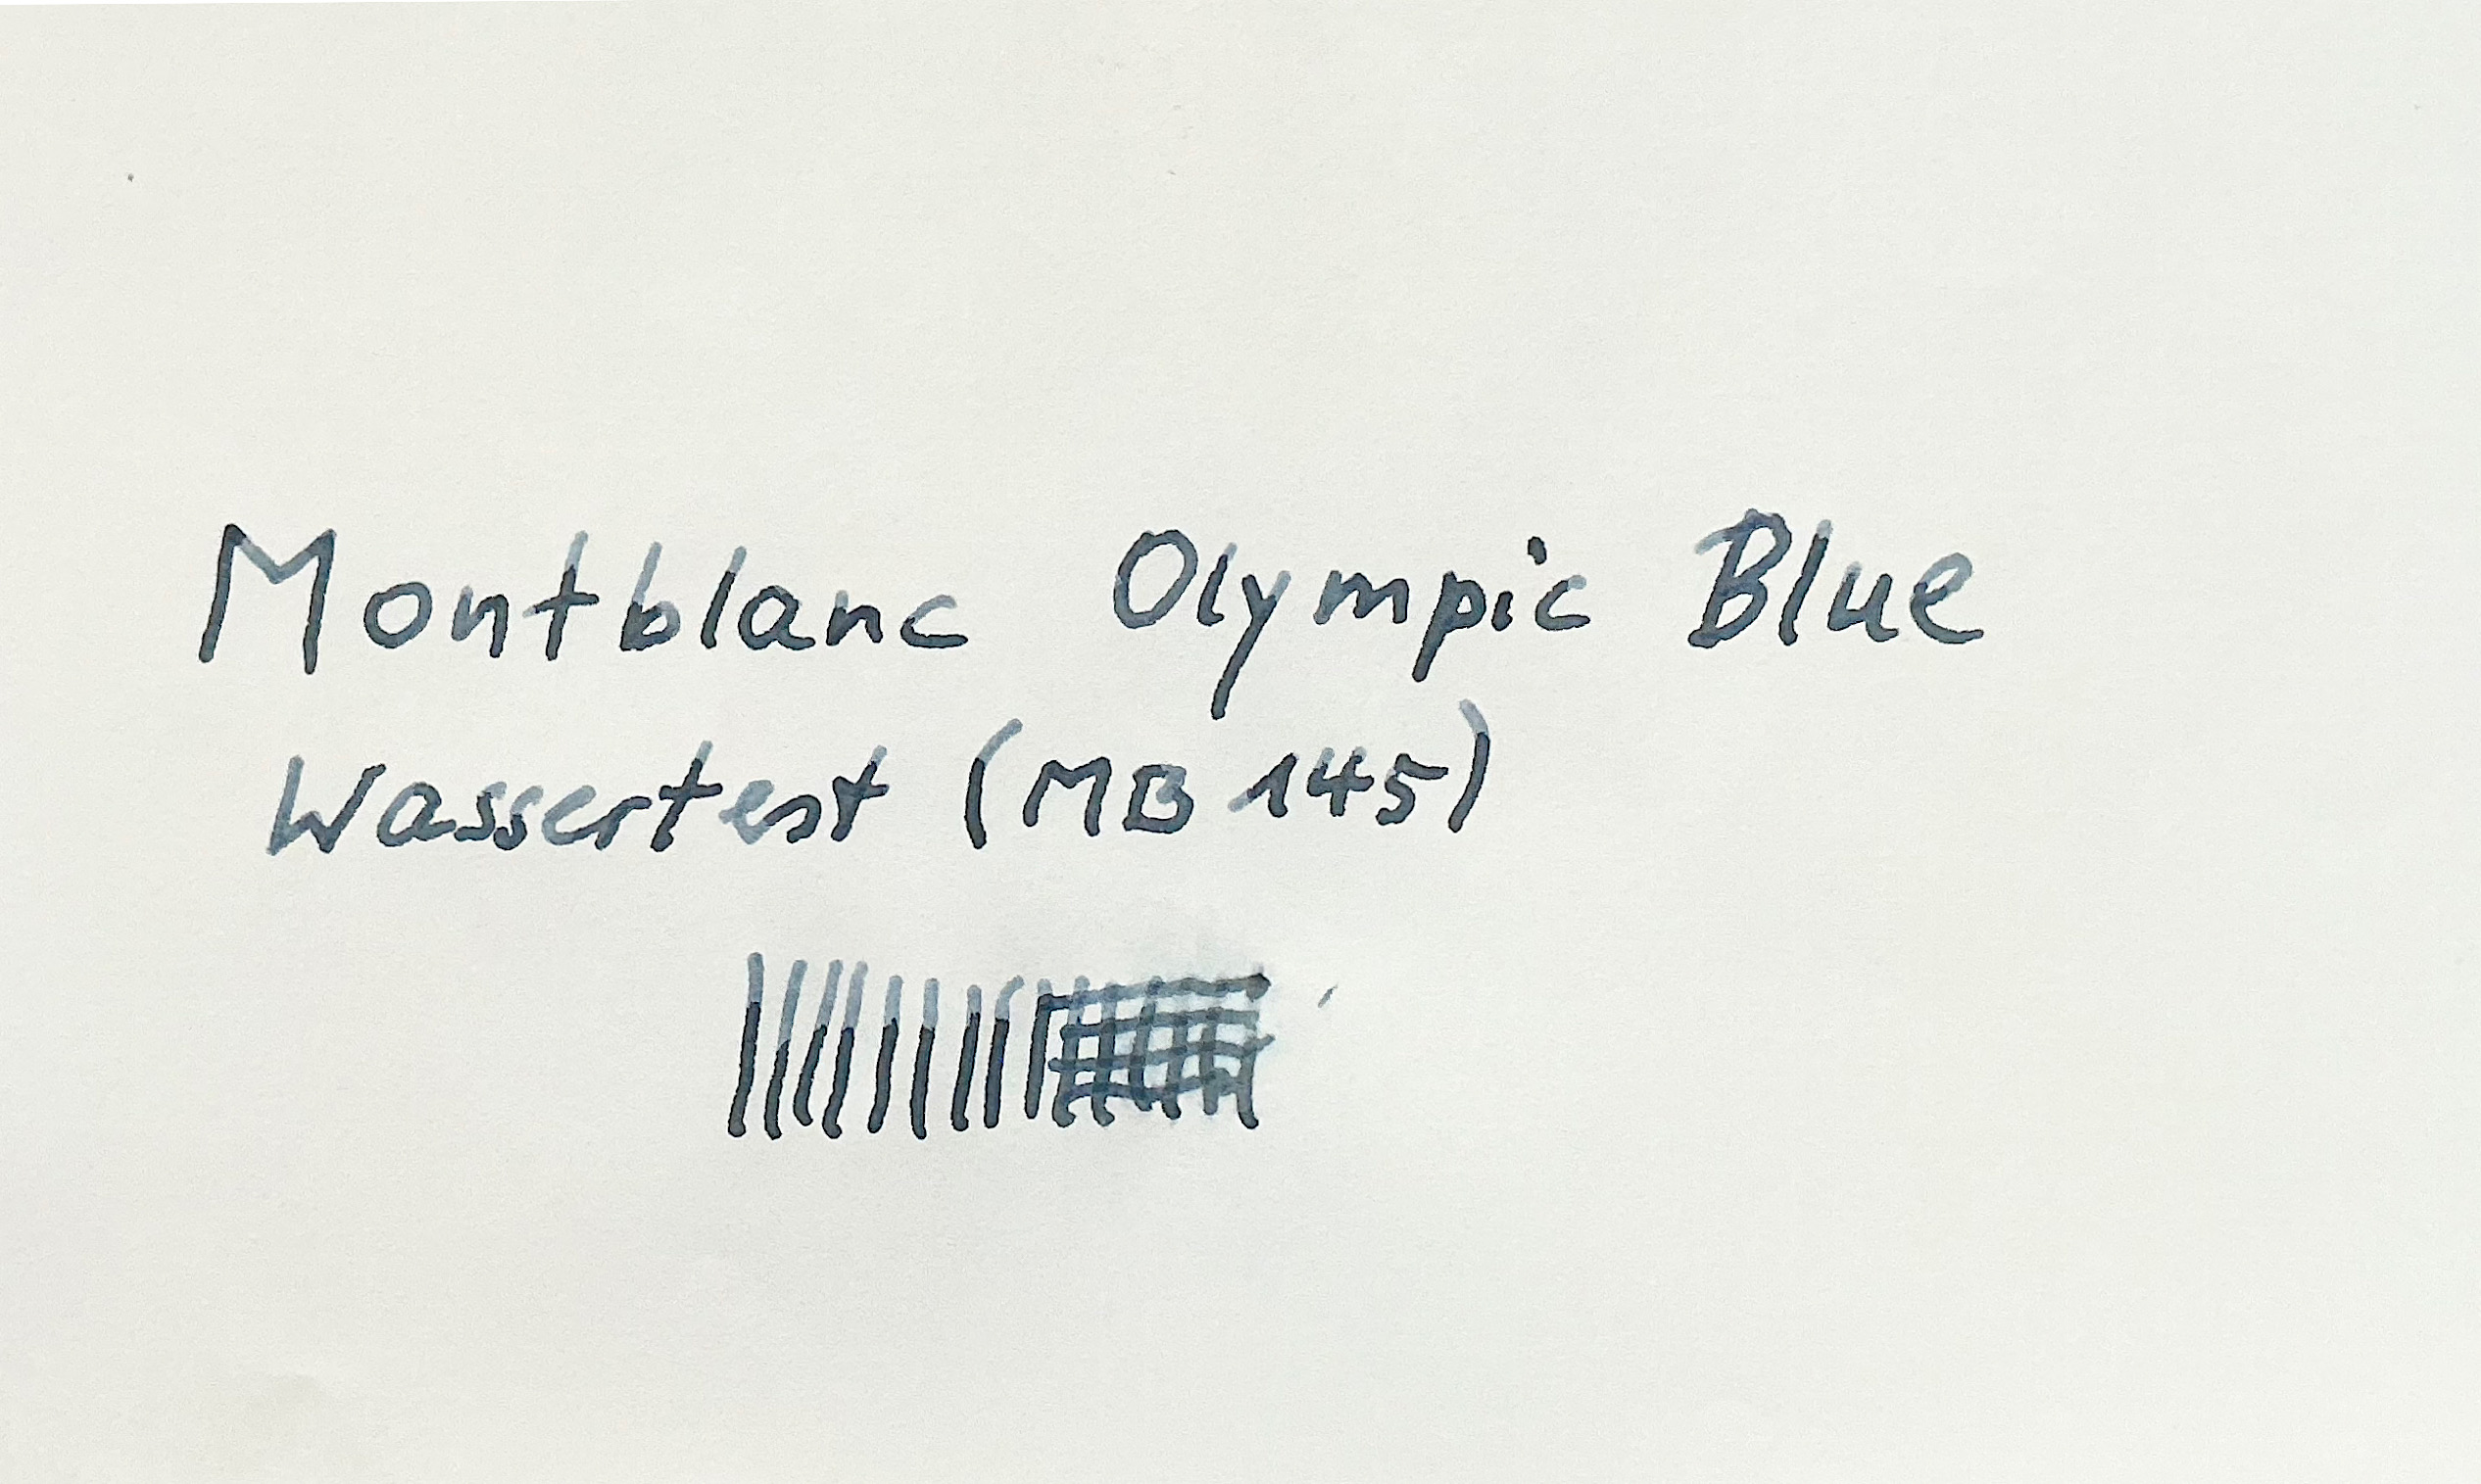 Montblanc Olympic Blue
Wassertest (MB 145)